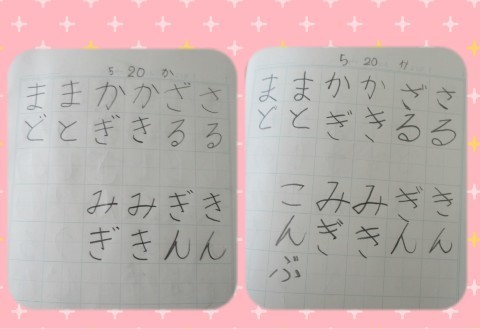 5 20 か
さる
ざる
かき
かぎ
まと
まど
きん
ぎん
みき
みぎ
5 20
さる
ざる
かき
かぎ
まと
まど
きん
ぎん
みき
みぎ
こんぶ